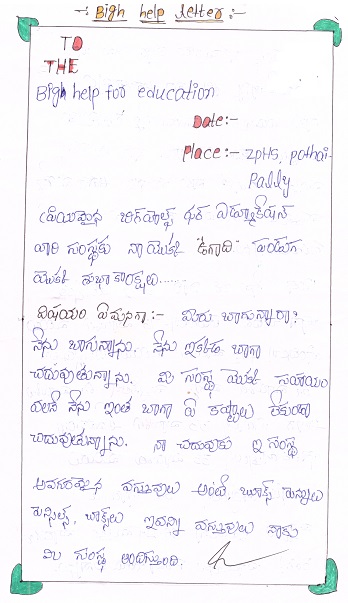 Bigh help letter:-
TO
THE
Bigh help for education
Date:-
Place:- ZPHS, pothai-
Paddy
ప్రియమైన బిగ్‌హెల్ప్ ఫర్ ఎడ్యుకేషన్
వారి సంస్థకు నా యొక్క "ఉగాది" పండుగ
యొక్క శుభాకాంక్షలు......
విషయం ఏమనగా:- మీరు బాగున్నారా?
నేను బాగున్నాను. నేను ఇక్కడ బాగా
చదువుతున్నాను. మీ సంస్థ యొక్క సహాయం
వలనే నేను ఇంత బాగా ఏ కష్టాలు లేకుండా
చదువుతున్నాను. నా చదువుకు ఈ సంస్థ
అవసరమైన వస్తువులు అంటే, బుక్స్ పెన్నులు
పెన్సిల్స్, బాక్స్‌లు ఇవన్నీ వస్తువులు నాకు
మీ సంస్థ అందిస్తుంది.